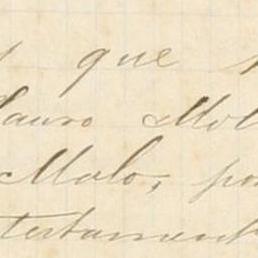 que
Mauro Mol
Malo, por
testament